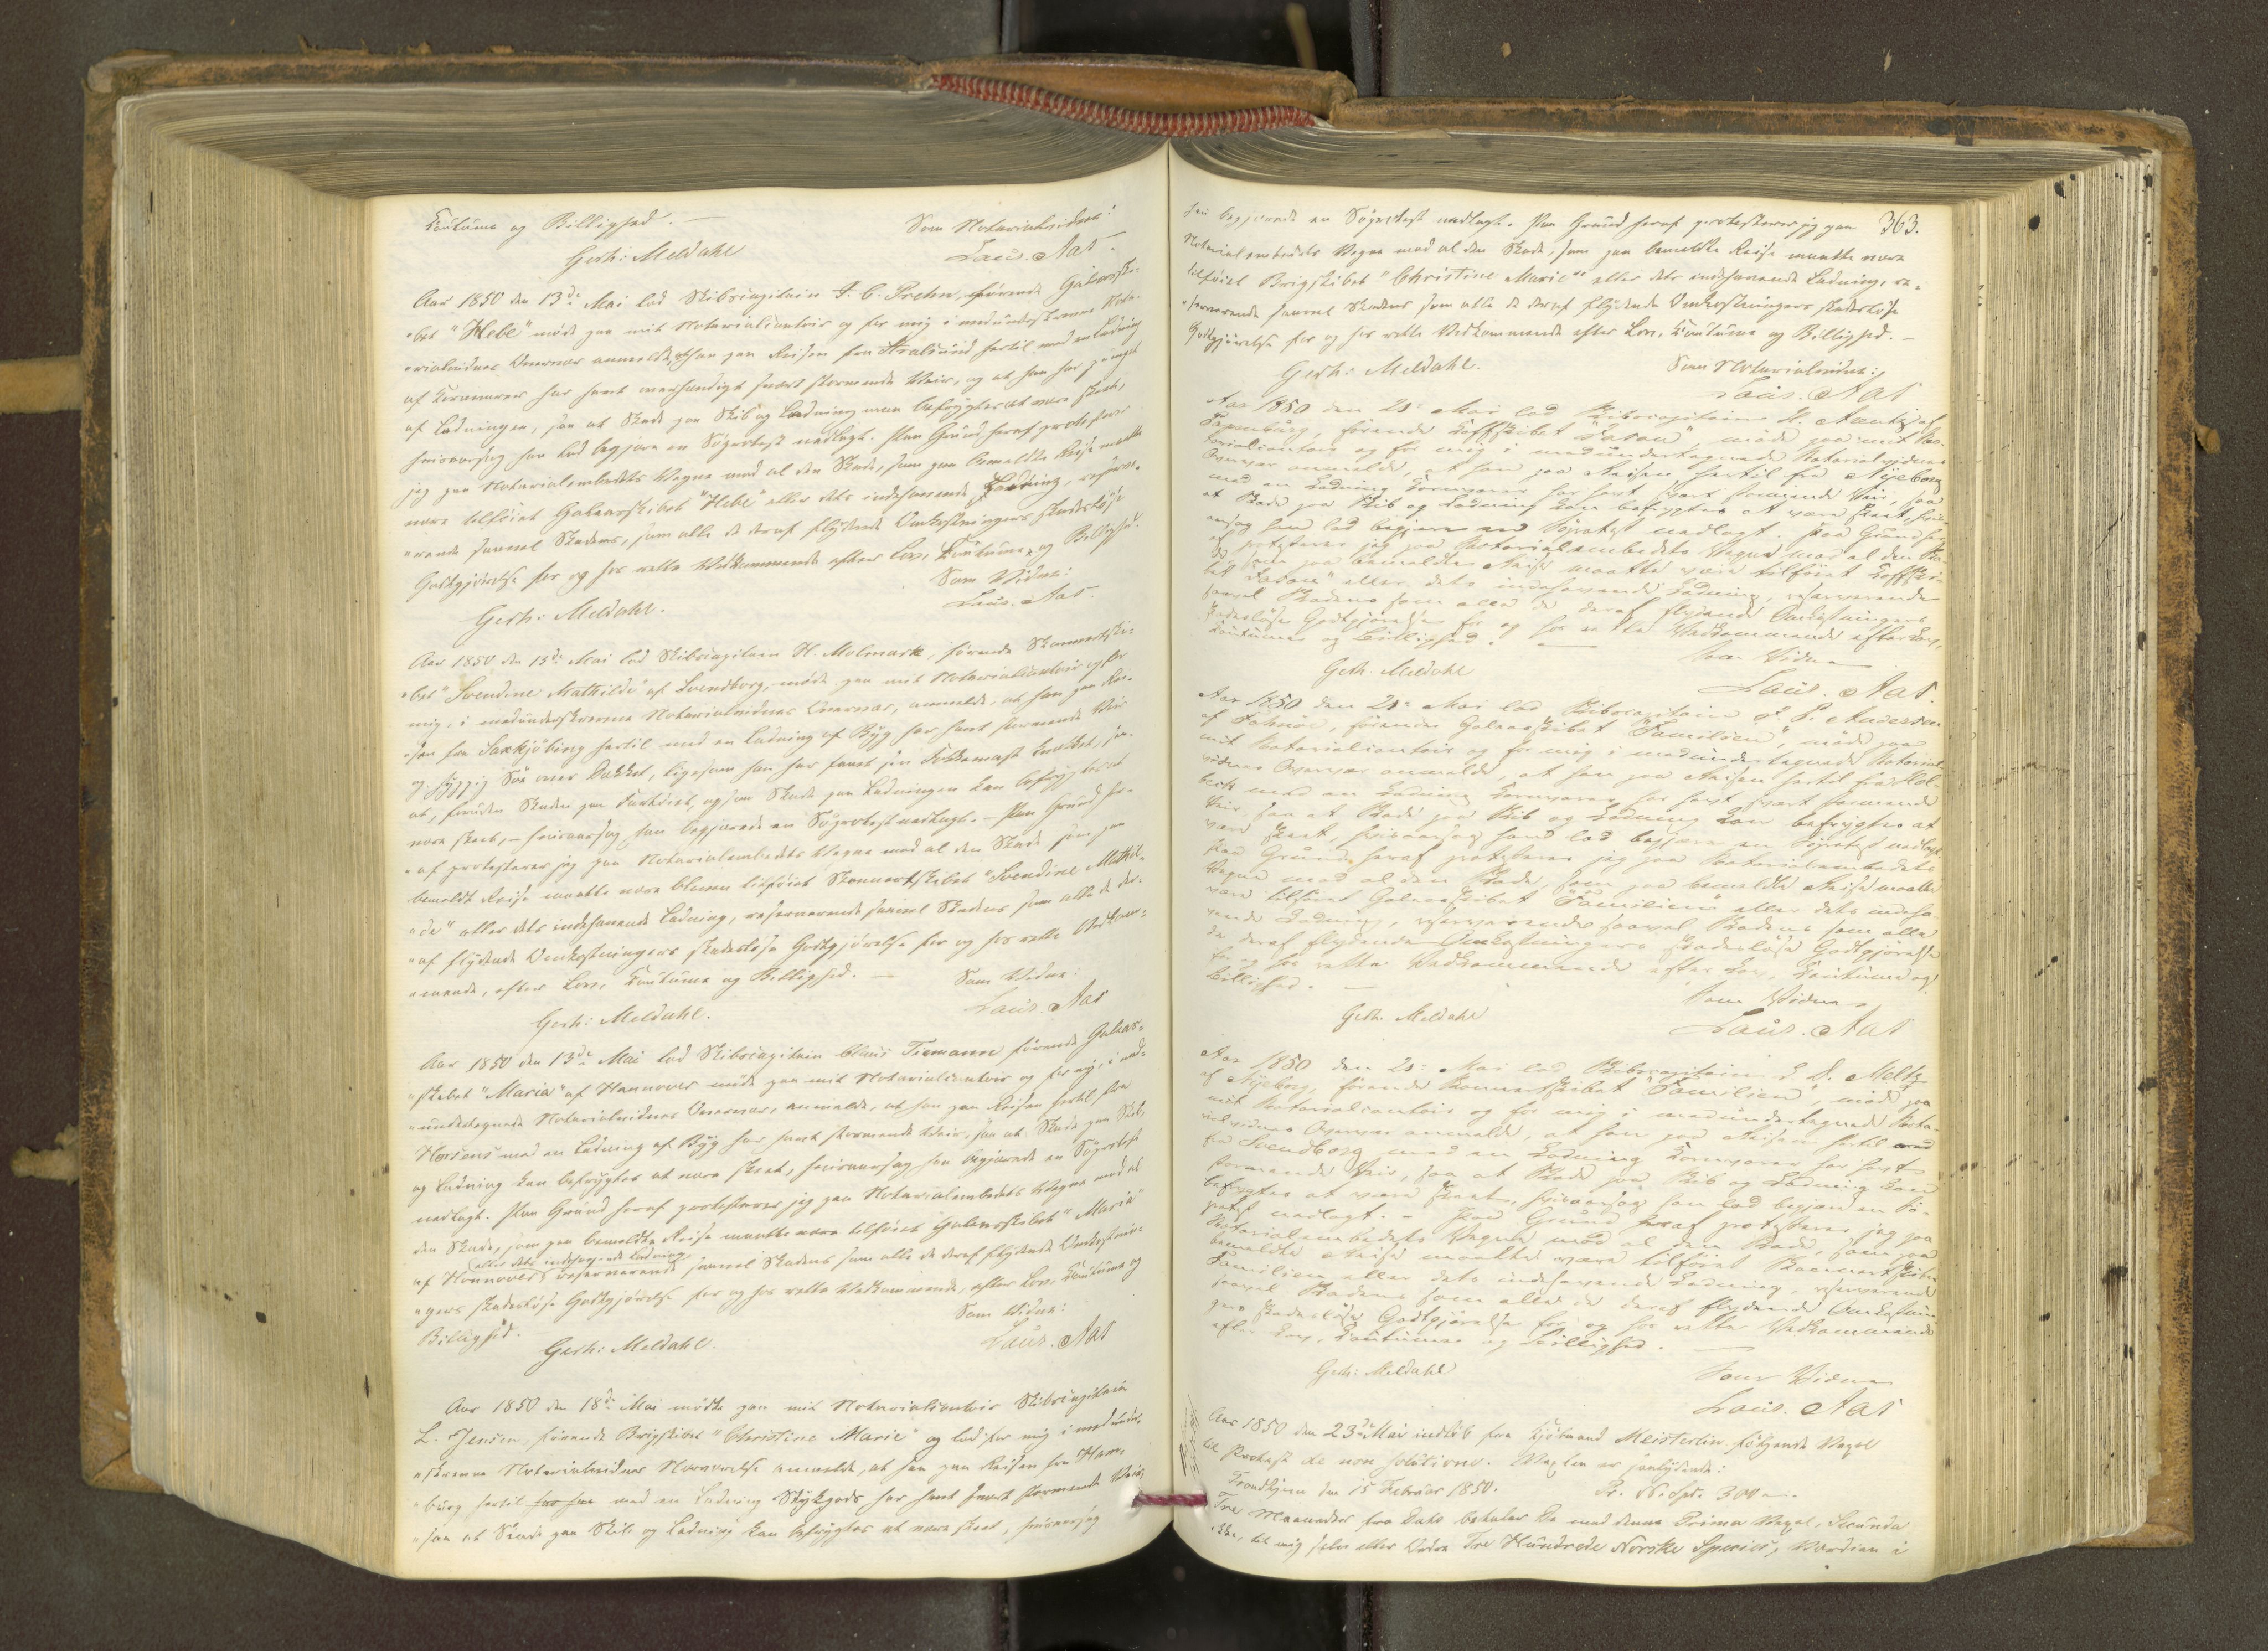 Coutume og Billighed. —
Som Notarialvidne:
Gerh: Meldahl
Laus. Aas.
Aar 1850 den 13de Mai lod Skibscapitain J. C. Prehn, førende Galeasski-
"bet "Hebe" møde paa mit Notarialcontoir og for mig i medunderskrevne Nota-
"rialvidnes Overvær anmelde, at han paa Reisen fra Stralsund hertil med en Ladning
af Kornvarer har havt overhændigt svært stormende Veir, og at han har
af Ladningen, saa at Skade paa Skib og Ladning maa befrygtes at være skeet,
hvisaarsag han lod begjære en Søprotest nedlagt. Paa Grund heraf protesterer
jeg paa Notarialembedets Vegne mod al den Skade, som paa bemeldte Reise maatte
være tilføiet Galeasskibet "Hebe" eller dets indehavende Ladning, reserve-
"rende saavel Skadens, som alle de deraf flydende Omkostningers skadesløse
Godtgjørelse for og hos rette Vedkommende efter Lov, Coutume og Billighed.
Som Vidne:
Gerh: Meldahl.
Laus. Aas.
Aar 1850 den 15de Mai lod Skibscapitain H. Molmark, førende Skonnertski-
"bet "Svendine Mathilde" af Svendborg, møde paa mit Notarialcontoir og for
mig, i medunderskrevne Notarialvidnes Overvær, anmelde, at han paa Rei-
"sen fra Saxkjøbing hertil med en Ladning af Byg har havt stormende Veir
og hyppig Søe over Dækket, ligesom han har faaet sin Fokkemast knækket, saa
at, foruden Skaden paa Fartøiet, ogsaa Skade paa Ladningen kan befrygtes at
være skeet, – hvisaarsag han begjærede en Søprotest nedlagt. – Paa Grund her-
"af protesterer jeg paa Notarialembedets Vegne mod al den Skade som paa
bemeldte Reise maatte være bleven tilføiet Skonnertskibet "Svendine Mathil-
"de" eller dets indehavende Ladning, reserverende saavel Skadens som alle de der-
"af flydende Omkostningers skadesløse Godtgjørelse for og hos rette Vedkom-
"mende, efter Lov, Coutume og Billighed. —
Som Vidne:
Gerh: Meldahl.
Laus. Aas
Aar 1850 den 13de Mai lod Skibscapitain Claus Tiemann førende Galeas-
"skibet "Maria" af Hannover møde paa mit Notarialcontoir og for mig, i med-
"undertegnede Notarialvidnes Overvær, anmelde, at han paa Reisen hertil fra
Horsens med en Ladning af Byg har havt stormende Veir, saa at Skade paa Skib
og Ladning kan befrygtes at være skeet, hvisaarsag han begjærede en Søprotest
nedlagt. Paa Grund heraf protesterer jeg paa Notarialembedets Vegne mod al
den Skade, som paa bemeldte Reise maatte være tilføiet Galeasskibet "Maria"
eller dets indehavende Ladning
af Hannover, reserverende saavel Skadens som alle de deraf flydende Omkostnin-
"gers skadesløse Godtgjørelse for og hos rette Vedkommende, efter Lov, Coutume og
Billighed.
Som Vidne:
Gerh: Meldahl.
Laus. Aas
Aar 1850 den 18de Mai mødte paa mit Notarialcontoir Skibscapitain
L. Jensen, førende Brigskibet "Christine Marie" og lod for mig i medunder-
"skrevne Notarialvidnes Nærværelse anmelde, at han paa Reisen fra Ham-
"burg hertil har han med en Ladning Stykgods har havt svært stormende Veir,
"saa at Skade paa Skib og Ladning kan befrygtes at være skeet, hvisaarsag
363.
han begjærede en Søprotest nedlagt. Paa Grund heraf protesterer jeg paa
Notarialembedets Vegne mod al den Skade, som paa bemeldte Reise maatte være
tilføiet Brigskibet "Christine Marie" eller dets indehavende Ladning, re-
"serverende saavel Skadens som alle de deraf flydende Omkostningers skadesløse
Godtgjørelse for og hos rette Vedkommende efter Lov, Coutume og Billighed. —
Gerh: Meldahl.
Som Notarialvidne:
Laus. Aas
Aar 1850 den 21: Mai lod Skibscapitain H. af
Papenburg, førende Koffskibet "Jason", møde paa mit No-
tarialcontoir og for mig i medundertegnede Notarialvidnes
Overvær anmelde, at han paa Reisen hertil fra Nyeborg
med en Ladning Kornvarer har havt svært stormende Veir, saa
at Skade paa Skib og Ladning kan befrygtes at være skeet, hvis-
aarsag han lod begjære en Søprotest nedlagt. Paa Grund her-
af protesterer jeg paa Notarialembedets Vegne mod al den Ska-
de som paa bemeldte Reise maatte være tilføiet Koffski-
bet "Jason" eller dets indehavende Ladning, reserverende
saavel Skadens som alle de deraf flydende Omkostningers
skadesløse Godtgjørelse for og hos rette Vedkommende efter Lov,
Coutume og Billighed. —
Som Vidne
Gerh. Meldahl
Laus. Aas.
Aar 1850 den 21: Mai lod Skibscapitain P. Andersen
af, førende Galeasskibet "Familien", møde paa
mit Notarialcontoir og for mig i medundertegnede Notarial-
vidnes Overvær anmelde, at han paa Reisen hertil fra Hol-
bek med en Ladning Kornvarer har havt svært stormende
Veir, saa at Skade paa Skib og Ladning kan befrygtes at
være skeet, hvisaarsag han lod begjære en Søprotest nedlagt.
Paa Grund heraf protesterer jeg paa Notarialembedets
Vegne mod al den Skade, som paa bemeldte Reise maatte
være tilføiet Galeasskibet "Familien" eller dets indeha-
vende Ladning, reserverende saavel Skadens som alle
de deraf flydende Omkostningers skadesløse Godtgjørelse
for og hos rette Vedkommende efter Lov, Coutume og
Billighed. —
Som Vidne
Gerh. Meldahl
Laus. Aas
Aar 1850 den 21: Mai lod Skibscapitain Meltz
af Nyeborg, førende Skonnertskibet "Familien", møde paa
mit Notarialcontoir og for mig i medundertegnede Nota-
rialvidnes Overvær anmelde, at han paa Reisen hertil
fra Svendborg med en Ladning Kornvarer har havt
stormende Veir, saa at Skade paa Skib og Ladning kan
befrygtes at være skeet, hvisaarsag han lod begjære en Sø-
protest nedlagt. – Paa Grund heraf protesterer jeg paa
Notarialembedets Vegne mod al den Skade, som paa
bemeldte Reise maatte være tilføiet Skonnertskibet
Familien eller dets indehavende Ladning, reserverende
saavel Skadens som alle de deraf flydende Omkostnin-
gers skadesløse Godtgjørelse for og hos rette Vedkommende
efter Lov, Coutume og Billighed. —
Som Vidne
Gerh: Meldahl
Laus. Aas
Aar 1850 den 23de Mai indløb fra Kjøbmand Meisterlin følgende Vexel
til Protest de non solutione. Vexlen er saalydende:
Trondhjem den 15 Februar 1850.
Pr. N. Spd. 300 –.
Tre Maaneder fra Dato betaler De mod denne Prima Vexel, Secunda
ikke, til mig selv eller Ordre Tre Hundrede Norske Species, Værdien i